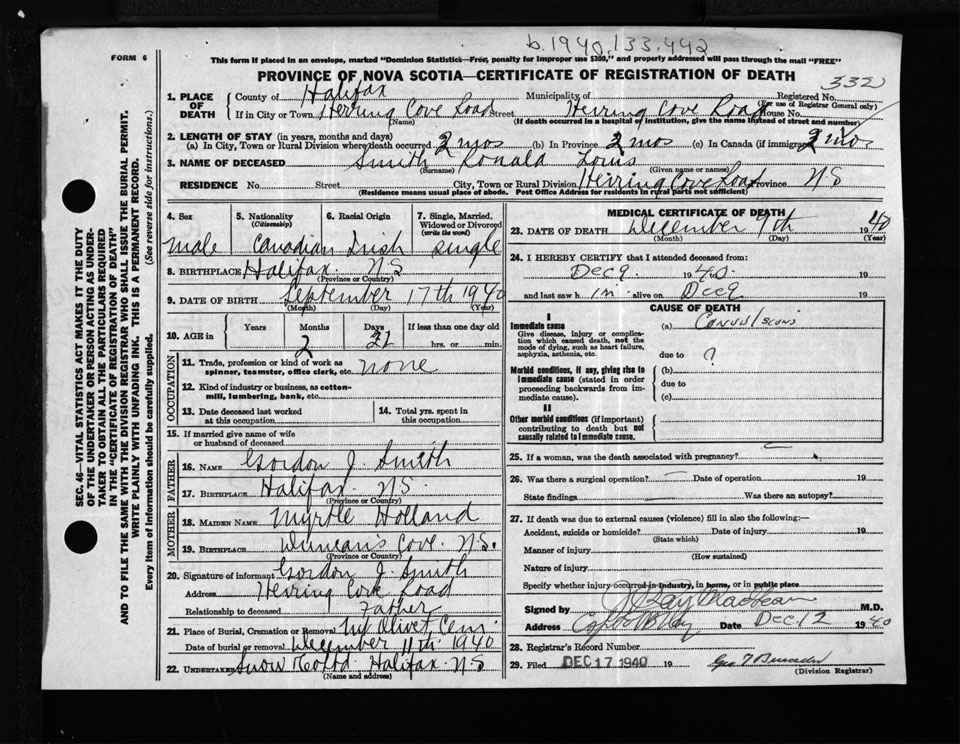 b.1940.133.442
FORM 6
This form if placed in an envelope, marked "Dominion Statistics—Free, penalty for improper use $300," and properly addressed will pass through the mail "FREE"
PROVINCE OF NOVA SCOTIA—CERTIFICATE OF REGISTRATION OF DEATH
332
1. PLACE OF DEATH County of Halifax Municipality of Registered No. (For use of Registrar General only)
If in City or Town Herring Cove Road Street Herring Cove Road House No.
(Name) (If death occurred in a hospital or institution, give the name instead of street and number)
2. LENGTH OF STAY (in years, months and days)
(a) In City, Town or Rural Division where death occurred 2 mos (b) In Province 2 mos (c) In Canada (if immigrant) 2 mos
3. NAME OF DECEASED Smith Ronald Louis
(Surname) (Given name or names)
RESIDENCE No. Street City, Town or Rural Division Herring Cove Road Province NS
(Residence means usual place of abode. Post Office Address for residents in rural parts not sufficient)
4. Sex 5. Nationality (Citizenship) 6. Racial Origin 7. Single, Married, Widowed or Divorced (write the word)
male Canadian Irish single
8. BIRTHPLACE Halifax NS
(Province or Country)
9. DATE OF BIRTH September 17th 1940
(Month) (Day) (Year)
10. AGE in Years Months Days If less than one day old
2 hrs. or min.
OCCUPATION
11. Trade, profession or kind of work as spinner, teamster, office clerk, etc. none
12. Kind of industry or business, as cotton-mill, lumbering, bank, etc.
13. Date deceased last worked at this occupation 14. Total yrs. spent in this occupation
15. If married give name of wife or husband of deceased
FATHER
16. NAME Gordon J. Smith
17. BIRTHPLACE Halifax NS.
(Province or Country)
MOTHER
18. MAIDEN NAME Myrtle Holland
19. BIRTHPLACE Duncans Cove. N.S.
(Province or Country)
20. Signature of informant Gordon J. Smith
Address Herring Cove Road
Relationship to deceased Father
21. Place of Burial, Cremation or Removal Mt Olivet Cem.
Date of burial or removal December 11th 1940
22. UNDERTAKER Snow Halifax NS
(Name and address)
MEDICAL CERTIFICATE OF DEATH
23. DATE OF DEATH December 9th 1940
(Month) (Day) (Year)
24. I HEREBY CERTIFY that I attended deceased from:
Dec 9 1940.
and last saw h im alive on Dec 9 19
CAUSE OF DEATH
I
Immediate cause (a) Convulsions
Give disease, injury or complication which caused death, not the mode of dying, such as heart failure, asphyxia, asthenia, etc.
due to ?
Morbid conditions, if any, giving rise to immediate cause (stated in order proceeding backwards from immediate cause).
(b)
due to
(c)
II
Other morbid conditions (if important) contributing to death but not causally related to immediate cause.
25. If a woman, was the death associated with pregnancy?
26. Was there a surgical operation? Date of operation 19
State findings Was there an autopsy?
27. If death was due to external causes (violence) fill in also the following:—
Accident, suicide or homicide? Date of injury 19
(State which)
Manner of injury
(How sustained)
Nature of injury
Specify whether injury occurred in industry, in home, or in public place
Signed by M.D.
Address Date Dec 12 1940
28. Registrar's Record Number
29. Filed DEC 17 1940 19
(Division Registrar)
SEC. 46—VITAL STATISTICS ACT MAKES IT THE DUTY
OF THE UNDERTAKER OR PERSON ACTING AS UNDERTAKER TO OBTAIN ALL THE PARTICULARS REQUIRED
IN THE "CERTIFICATE OF REGISTRATION OF DEATH"
AND TO FILE THE SAME WITH THE DIVISION REGISTRAR WHO SHALL ISSUE THE BURIAL PERMIT.
WRITE PLAINLY WITH UNFADING INK. THIS IS A PERMANENT RECORD.
Every item of information should be carefully supplied. (See reverse side for instructions.)